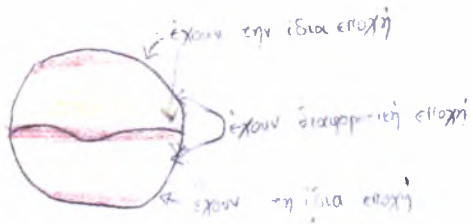 έχουν την ίδια εποχή
έχουν διαφορετική εποχή
έχουν τη ίδια εποχή